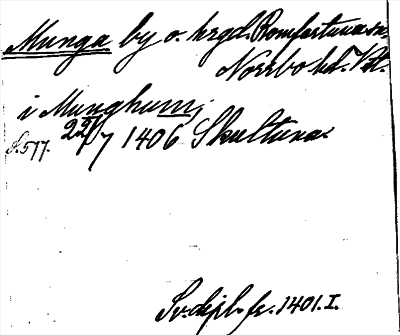 Munga by o. hrgd. Romfartuna sn,
Norrbo hd. Vstl.
i Munghum,
S. 577. 22/7 1406 Skultuna
Sv. dipl. fr. 1401. I.